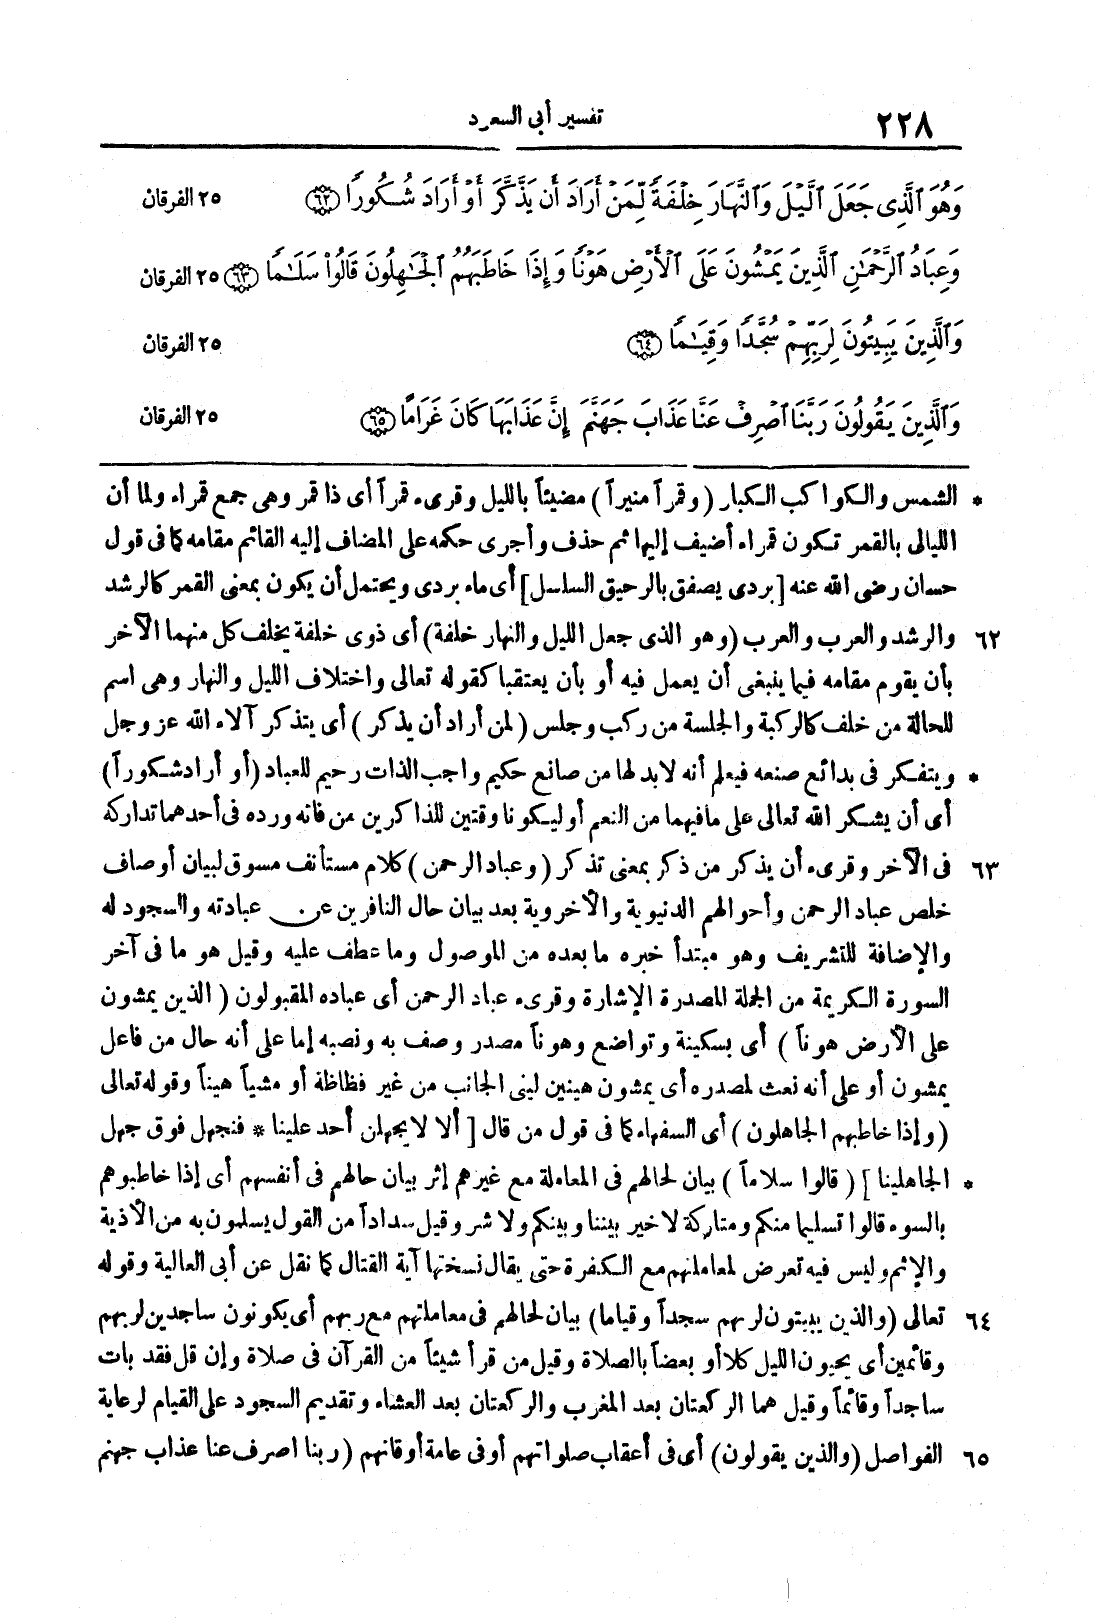 ٢٢٨ تفسير أبى السعود
وَهُوَ ٱلَّذِى جَعَلَ ٱلَّيْلَ وَٱلنَّهَارَ خِلْفَةً لِّمَنْ أَرَادَ أَن يَذَّكَّرَ أَوْ أَرَادَ شُكُورًا ﴿٦٢﴾ ٢٥ الفرقان
وَعِبَادُ ٱلرَّحْمَٰنِ ٱلَّذِينَ يَمْشُونَ عَلَى ٱلْأَرْضِ هَوْنًا وَإِذَا خَاطَبَهُمُ ٱلْجَٰهِلُونَ قَالُوا۟ سَلَٰمًا ﴿٦٣﴾ ٢٥ الفرقان
وَٱلَّذِينَ يَبِيتُونَ لِرَبِّهِمْ سُجَّدًا وَقِيَٰمًا ﴿٦٤﴾ ٢٥ الفرقان
وَٱلَّذِينَ يَقُولُونَ رَبَّنَا ٱصْرِفْ عَنَّا عَذَابَ جَهَنَّمَ إِنَّ عَذَابَهَا كَانَ غَرَامًا ﴿٦٥﴾ ٢٥ الفرقان
* الشمس والكواكب الكبار (وقمراً منيراً) مضيئاً بالليل وقرىء قمراً أى ذا قمر وهى جمع قمراء ولما أن
الليالى بالقمر تكون قمراء أضيف إليها ثم حذف وأجرى حكمه على المضاف إليه القائم مقامه كما فى قول
حسان رضى الله عنه [بردى يصفق بالرحيق السلسل] أى ماء بردى ويحتمل أن يكون بمعنى القمر كالرشد
٦٢ والرشد والعرب والعرب (وهو الذى جعل الليل والنهار خلفة) أى ذوى خلفة يخلف كل منهما الآخر
بأن يقوم مقامه فيما ينبغى أن يعمل فيه أو بأن يعتقبا كقوله تعالى واختلاف الليل والنهار وهى اسم
للحالة من خلف كالركبة والجلسة من ركب وجلس (لمن أراد أن يذكر) أى يتذكر آلاء الله عز وجل
* ويتفكر فى بدائع صنعه فيعلم أنه لابد لها من صانع حكيم واجب الذات رحيم للعباد (أو أراد شكوراً)
أى أن يشكر الله تعالى على ما فيهما من النعم أو ليكونا وقتين للذاكرين من فاته ورده فى أحدهما تداركه
٦٣ فى الآخر وقرىء أن يذكر من ذكر بمعنى تذكر (وعباد الرحمن) كلام مستأنف مسوق لبيان أوصاف
خلص عباد الرحمن وأحوالهم الدنيوية والأخروية بعد بيان حال النافرين عن عبادته والسجود له
والإضافة للتشريف وهو مبتدأ خبره ما بعده من الموصول وما عطف عليه وقيل هو ما فى آخر
السورة الكريمة من الجملة المصدرة الإشارة وقرىء عباد الرحمن أى عباده المقبولون (الذين يمشون
على الأرض هوناً) أى بسكينة وتواضع وهوناً مصدر وصف به ونصبه إما على أنه حال من فاعل
يمشون أو على أنه نعت لمصدره أى يمشون هينين لينى الجانب من غير فظاظة أو مشياً هيناً وقوله تعالى
(وإذا خاطبهم الجاهلون) أى السفهاء كما فى قول من قال [ألا لا يجهلن أحد علينا * فنجهل فوق جهل
* الجاهلينا] (قالوا سلاماً) بيان لحالهم فى المعاملة مع غيرهم إثر بيان حالهم فى أنفسهم أى إذا خاطبوهم
بالسوء قالوا تسليما منكم ومتاركة لا خير بيننا وبينكم ولا شر وقيل سداداً من القول يسلمون به من الأذية
والإثم وليس فيه تعرض لمعاملتهم مع الكفرة حتى يقال نسختها آية القتال كما نقل عن أبى العالية وقوله
٦٤ تعالى (والذين يبيتون لربهم سجداً وقياما) بيان لحالهم فى معاملتهم مع ربهم أى يكونون ساجدين لربهم
وقائمين أى يحيون الليل كلا أو بعضاً بالصلاة وقيل من قرأ شيئاً من القرآن فى صلاة وإن قل فقد بات
ساجداً وقائماً وقيل هما الركعتان بعد المغرب والركعتان بعد العشاء وتقديم السجود على القيام لرعاية
٦٥ الفواصل (والذين يقولون) أى فى أعقاب صلواتهم أو فى عامة أوقاتهم (ربنا اصرف عنا عذاب جهنم